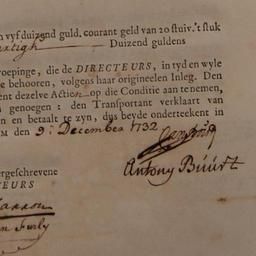 en vyf duizend guld. courant geld van 20 stuiv. 't stuk
Duizend guldens
roepinge, die de DIRECTEURS, in tyd en wyle
te behooren, volgens haar origineelen Inleg. Den
ent dezelve Actien op die Conditie aan te nemen,
genoegen: den Transportant verklaart van
en betaalt te zyn, dus beyde onderteekent in
M den 9: December 1732.
Antony Búúrt
ergeschrevene
TEURS